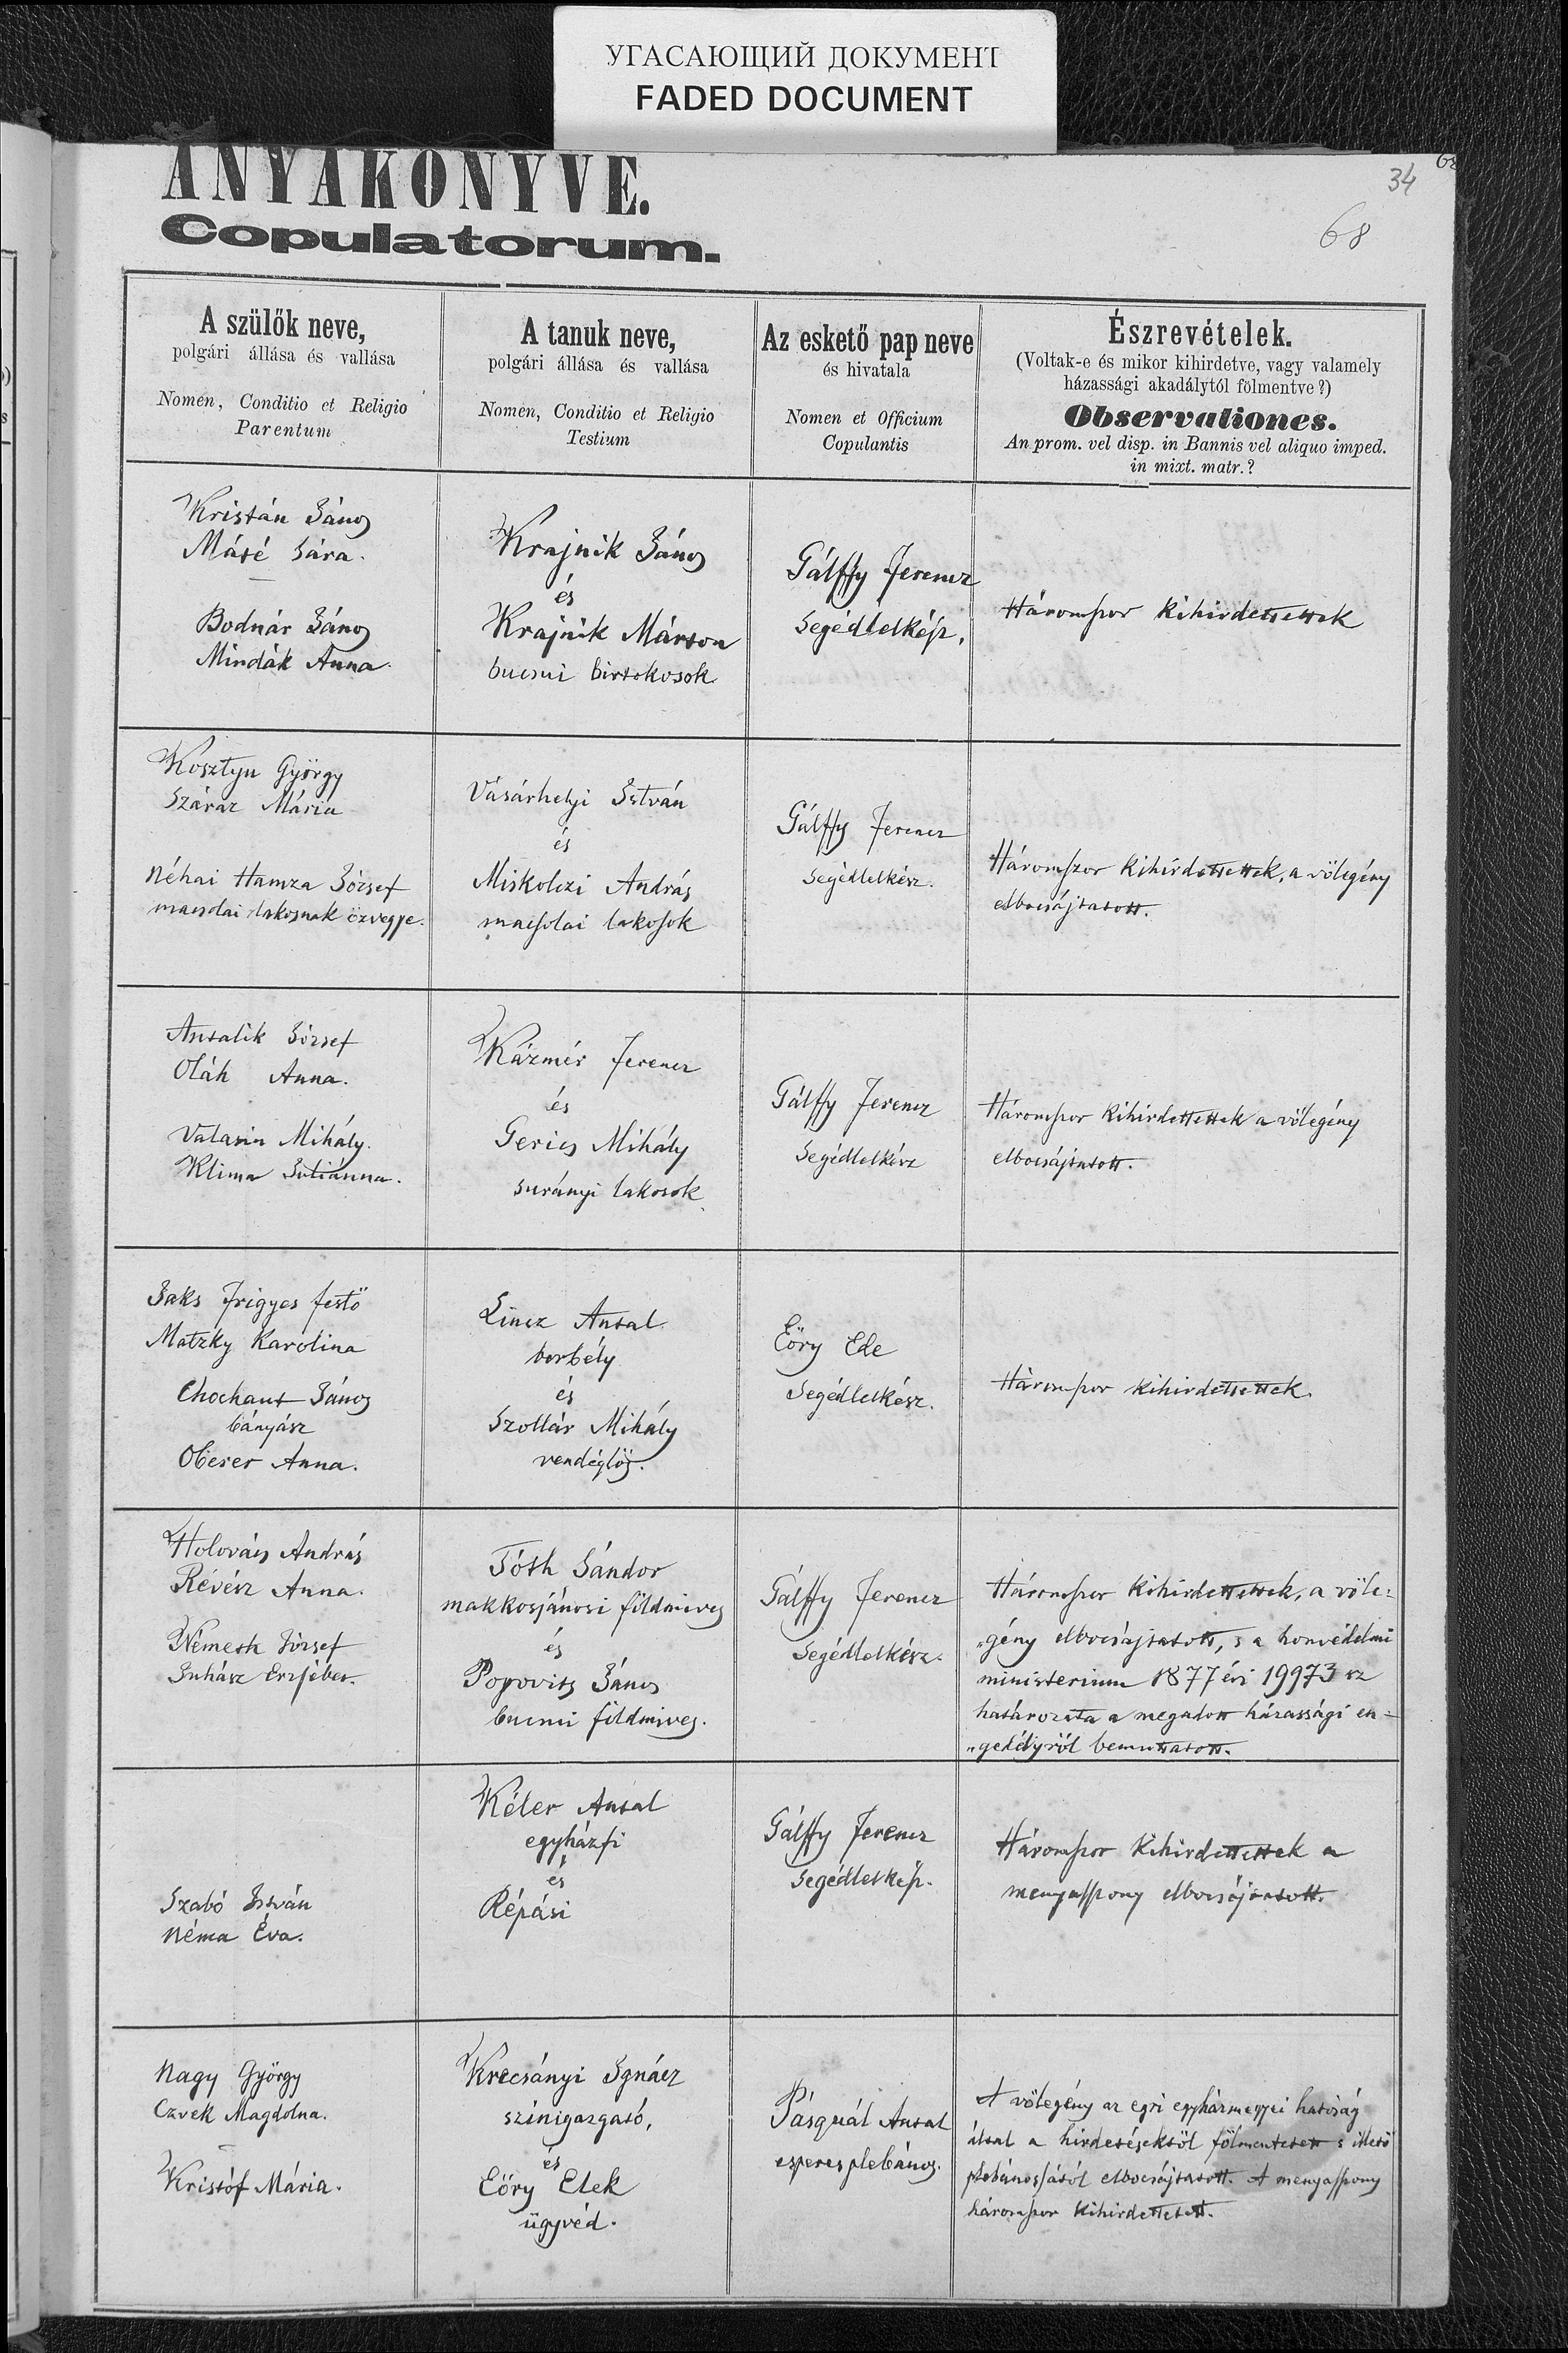 УГАСАЮЩИЙ ДОКУМЕНТ
FADED DOCUMENT
ANYAKÖNYVE.
Copulatorum.
34
68
A szülők neve,
polgári állása és vallása
Nomen, Conditio et Religio
Parentum
A tanuk neve,
polgári állása és vallása
Nomen, Conditio et Religio
Testium
Az eskető pap neve
és hivatala
Nomen et Officium
Copulantis
Észrevételek.
(Voltak-e és mikor kihirdetve, vagy valamely
házassági akadálytól fölmentve?)
Observationes.
An prom. vel disp. in Bannis vel aliquo imped.
in mixt. matr.?
Kristán János
Máté Sára.
Bodnár János
Mindák Anna.
Krajnik János
és
Krajnik Márton
bucsui birtokosok
Gálffy Ferencz
segédlelkész.
Háromszor kihirdettettek
Kosztyu György
Száraz Mária
Néhai Hamza József
macsolai lakosnak özvegye.
Vásárhelyi István
és
Miskolczi András
macsolai lakosok
Gálffy Ferencz
segédlelkész.
Háromszor kihirdettettek, a vőlegény
elbocsájtatott.
Antalik József
Oláh Anna.
Valasin Mihály.
Klima Juliánna.
Kázmér Ferencz
és
Gerics Mihály
surányi lakosok
Gálffy Ferencz
segédlelkész
Háromszor kihirdettettek a vőlegény
elbocsájtatott.
Jaks Frigyes festő
Matzky Karolina
Chochaut János
bányász
Oberer Anna.
Lincz Antal
borbély
és
Szollár Mihály
vendéglős.
Eőry Ede
segédlelkész.
Háromszor kihirdettettek.
Holovács András
Révész Anna.
Németh József
Juhász Erzsébet.
Tóth Sándor
makkosjánosi földmives
és
Popovits János
bucsui földmives.
Gálffy Ferencz
segédlelkész.
Háromszor kihirdettettek, a vőle=
„gény elbocsájtatott, s a honvédelmi
ministerium 1877 évi 19973 sz
határozata a megadott házassági en=
„gedélyről bemuttatott.
Szabó István
Néma Éva.
Kéler Antal
egyházfi
és
Répási
Gálffy Ferencz
segédlelkész.
Háromszor kihirdettettek a
menyasszony elbocsájtatott.
Nagy György
Czvek Magdolna.
Kristóf Mária.
Krecsányi Ignácz
szinigazgató,
és
Eőry Elek
ügyvéd.
Pásquál Antal
esperes plebános.
A vőlegény az egri egyházmegyei hatóság
által a hirdetésektől fölmentetett s illető
plebánossától elbocsájtatott. A menyasszony
háromszor kihirdettetett.